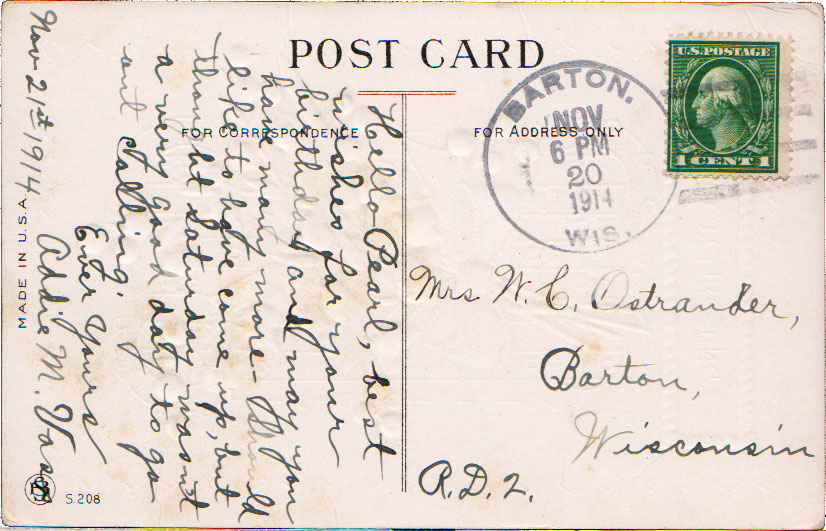 POST CARD
FOR CORRESPONDENCE
FOR ADDRESS ONLY
Nov 21st 1914
Hello Pearl, best
wishes for your
birthday and may you
have many more - Should
like to have come up, but
thought Saturday wasn't
a very good day to go
out calling.
Ever Yours
Addie M.
MADE IN U.S.A.
S.208
BARTON.
NOV
6 PM
20
1914
WIS.
U.S. POSTAGE
1 CENT 1
Mrs W. C. Ostrander,
Barton,
Wisconsin
R.D. 2.